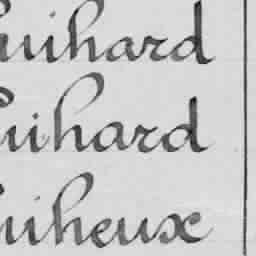 Guihard
Guihard
Guiheux